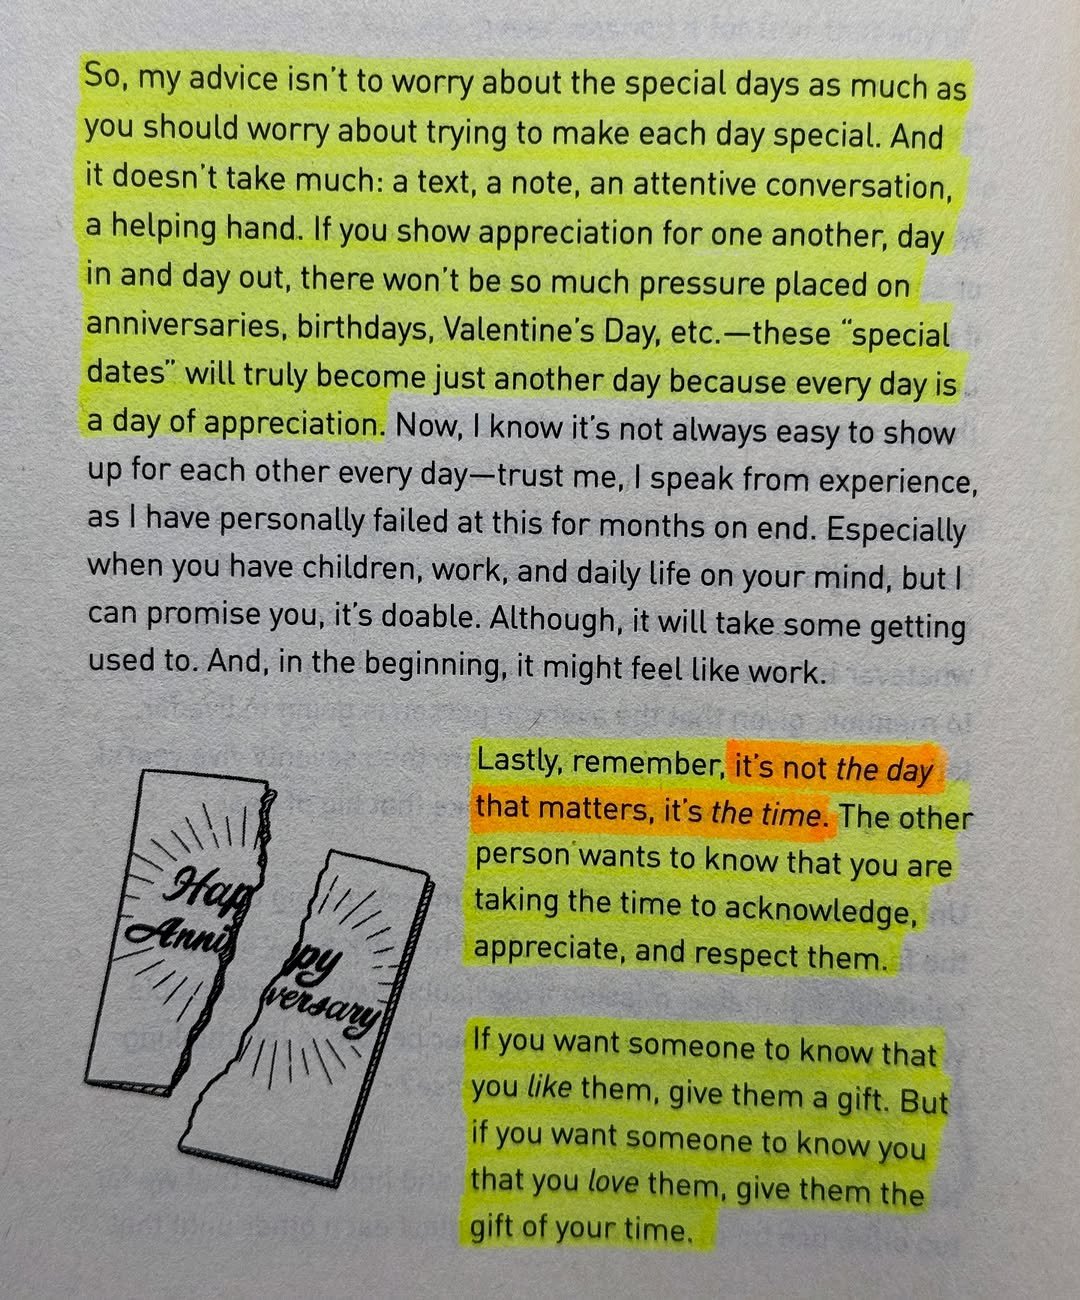 So, my advice isn't to worry about the special days as much as
you should worry about trying to make each day special. And
it doesn't take much: a text, a note, an attentive conversation,
a helping hand. If you show appreciation for one another, day
in and day out, there won't be so much pressure placed on
anniversaries, birthdays, Valentine's Day, etc.—these “special
dates” will truly become just another day because every day is
a day of appreciation. Now, I know it's not always easy to show
up for each other every day—trust me, I speak from experience,
as I have personally failed at this for months on end. Especially
when you have children, work, and daily life on your mind, but I
can promise you, it's doable. Although, it will take some getting
used to. And, in the beginning, it might feel like work.
Lastly, remember, it's not the day
that matters, it's the time. The other
person wants to know that you are
taking the time to acknowledge,
appreciate, and respect them.
If you want someone to know that
you like them, give them a gift. But
if you want someone to know you
that you love them, give them the
gift of your time.
Hap
Anni
py
versary